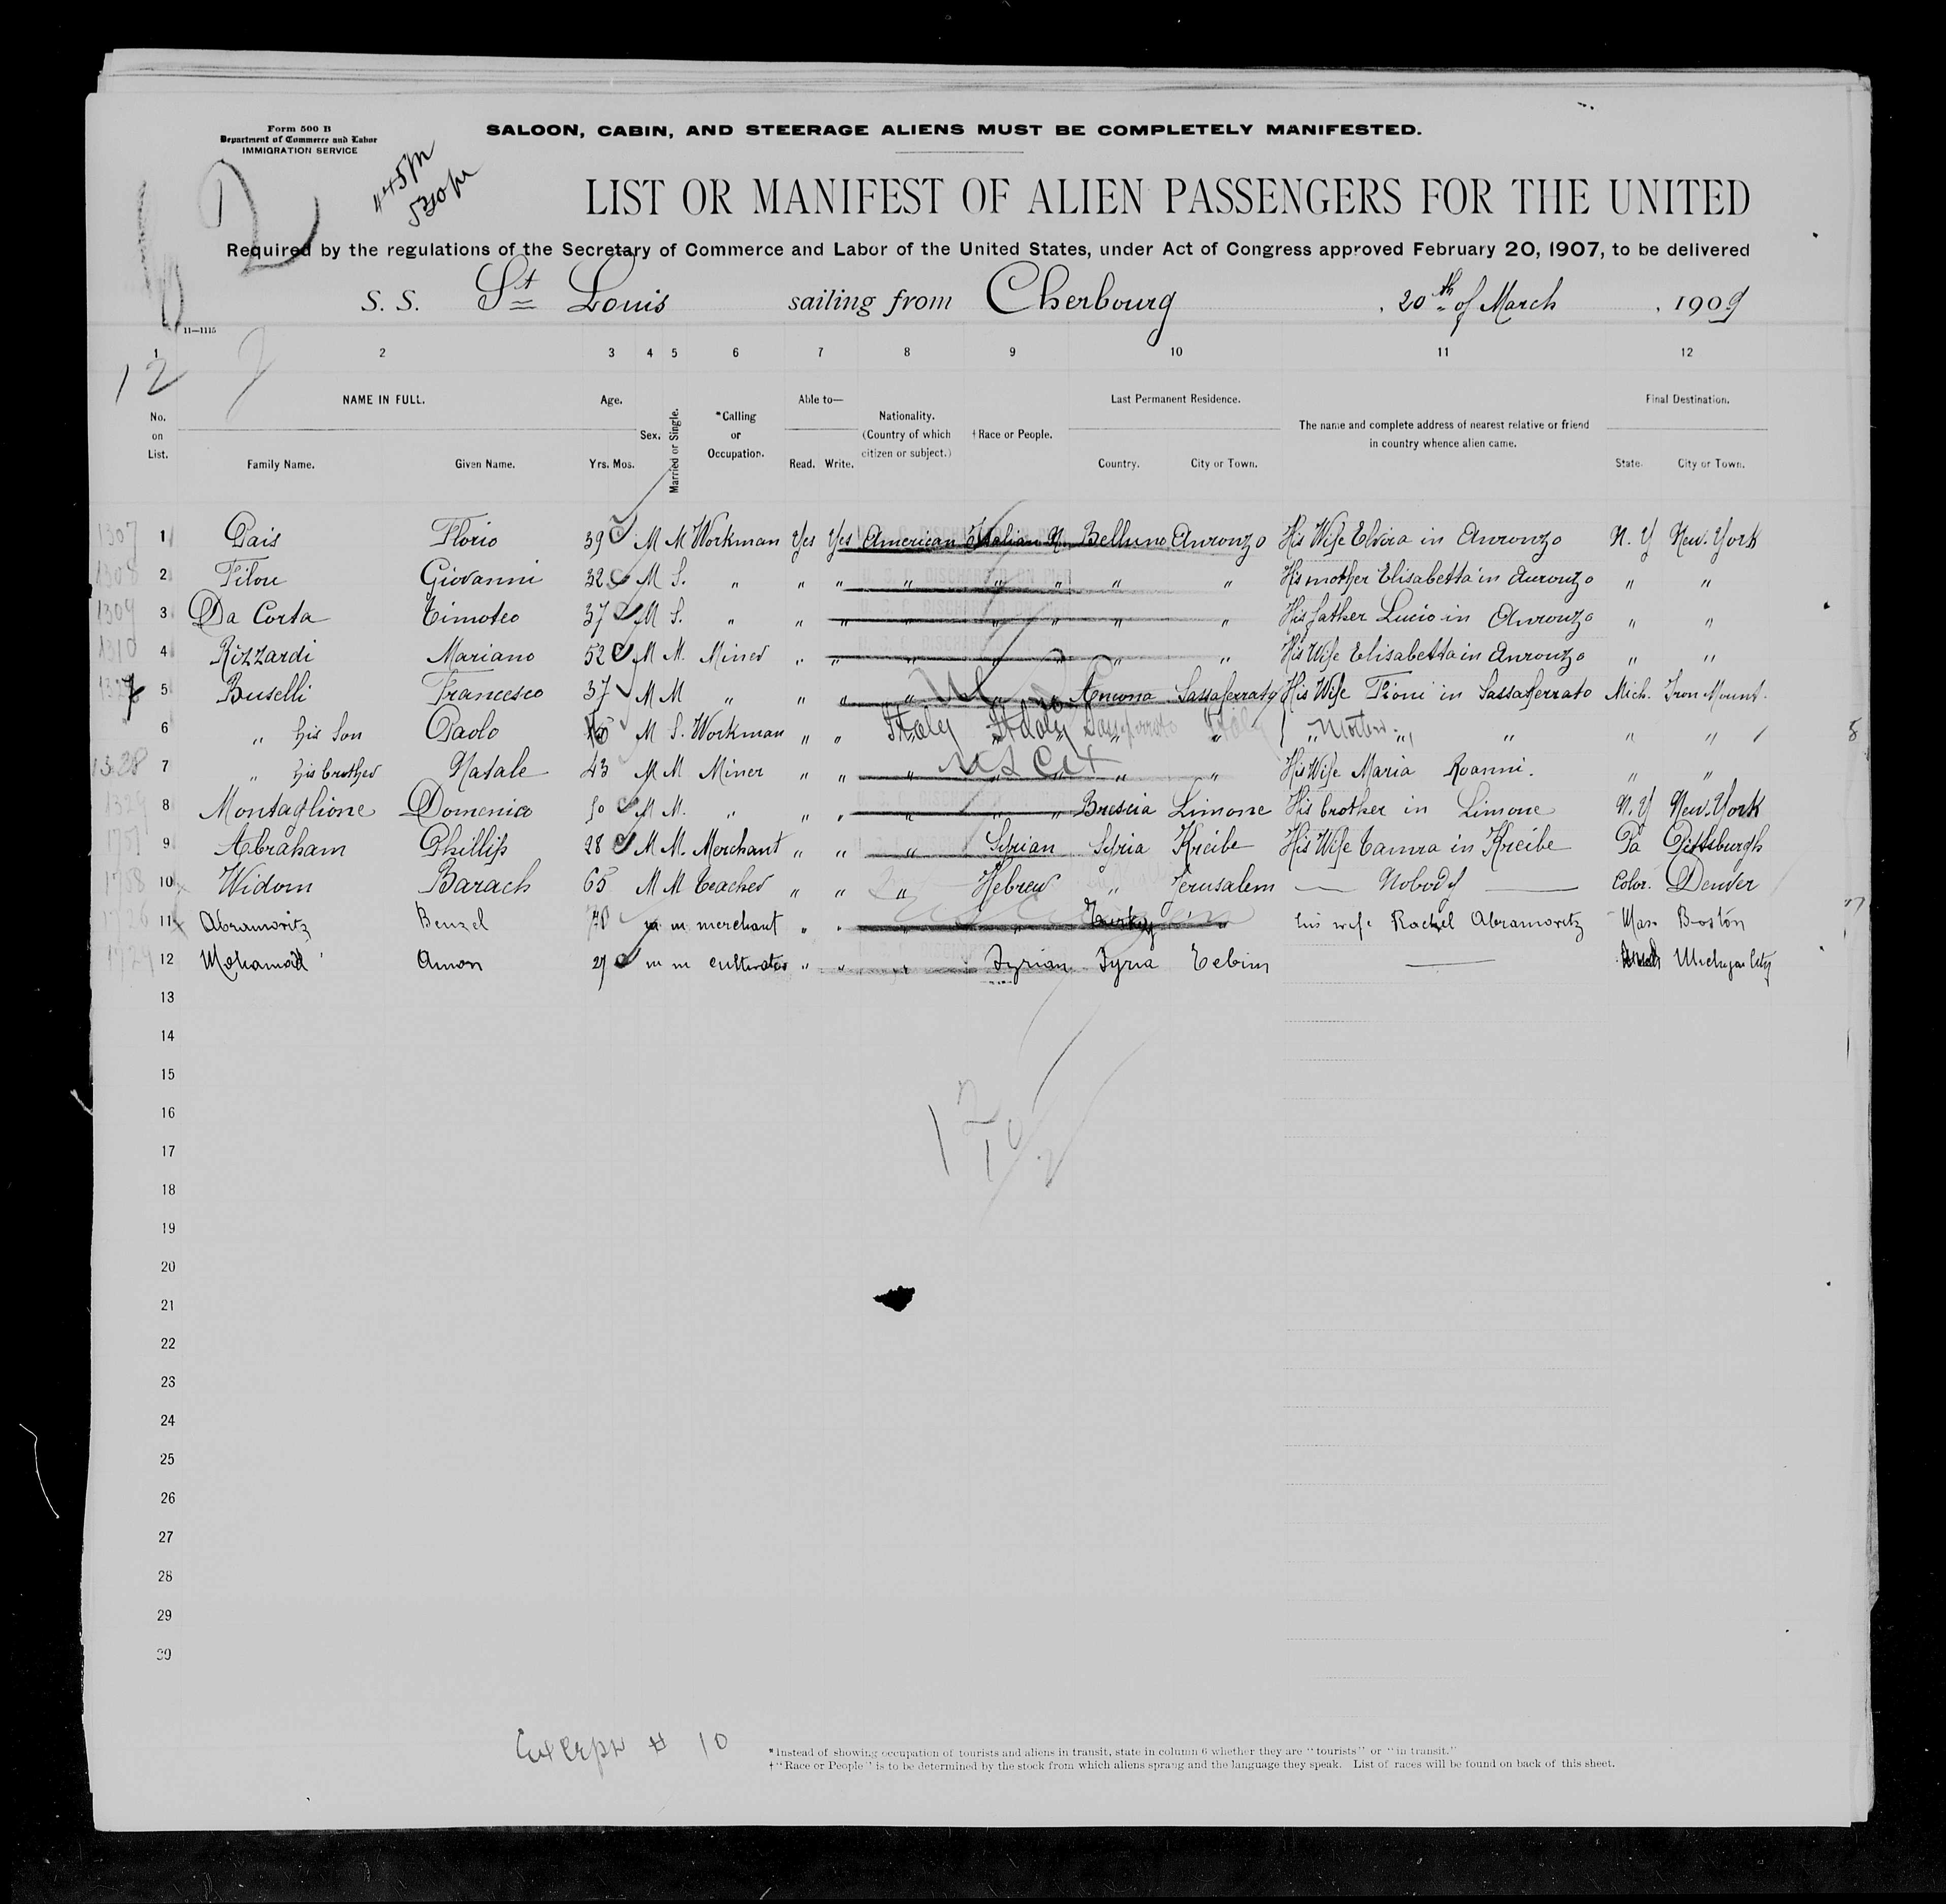 Form 500 B
Department of Commerce and Labor
IMMIGRATION SERVICE
SALOON, CABIN, AND STEERAGE ALIENS MUST BE COMPLETELY MANIFESTED.
445 pm
530 pm
LIST OR MANIFEST OF ALIEN PASSENGERS FOR THE UNITED
Required by the regulations of the Secretary of Commerce and Labor of the United States, under Act of Congress approved February 20, 1907, to be delivered
S. S. St Louis sailing from Cherbourg, 20th of March, 1909
11—1115
1 2 3 4 5 6 7 8 9 10 11 12
12
No. on List.
NAME IN FULL.
Family Name. Given Name.
Age.
Yrs. Mos.
Sex.
Married or Single.
*Calling or Occupation.
Able to—
Read. Write.
Nationality. (Country of which citizen or subject.)
†Race or People.
Last Permanent Residence.
Country. City or Town.
The name and complete address of nearest relative or friend in country whence alien came.
Final Destination.
State. City or Town.
1307 1 Pais Florio 39 M M Workman Yes Yes American Italian N. Belluno Auronzo His Wife Elvira in Auronzo N. Y New. York
1308 2 Filou Giovanni 32 M S. " " " " " " " " His mother Elisabetta in Auronzo " "
1309 3 Da Corta Timoteo 37 M S. " " " " " " " " His father Lucio in Auronzo " "
1310 4 Rizzardi Mariano 52 M M. Miner " " " " " " " His Wife Elisabetta in Auronzo " "
5 Buselli Francesco 37 M M " " " " " Ancona Sassaferrato His Wife in Sassaferrato Mich. Iron Mount.
6 " his son Paolo M S. Workman " " Italy Italy " " " Mother " " " "
1328 7 " his brother Natale 43 M M Miner " " " US Cit " " His Wife Maria Roanni. " "
1329 8 Montaglione Domenico 50 M M. " " " " " " Brescia Limone His brother in Limone N. Y New. York
1757 9 Abraham Phillip 28 M M. Merchant " " " Syrian Syria Kreibe His Wife Tamra in Kreibe Pa Pittsburgh
1758 10 Widom Barach 65 M M Teacher " " " Hebrew " Jerusalem — Nobody — Color. Denver
11 Abramovitz Benzel m m merchant " " " " Turkey " his wife Rachel Abramovitz Mas Boston
12 Mohamed Amon 27 m m cultivator " " " Syrian Syria Tebim — Michigan City
13
14
15
16
17
18
19
20
21
22
23
24
25
26
27
28
29
30
12
10
2
# 10
*Instead of showing occupation of tourists and aliens in transit, state in column 6 whether they are "tourists" or "in transit."
†"Race or People" is to be determined by the stock from which aliens sprang and the language they speak. List of races will be found on back of this sheet.